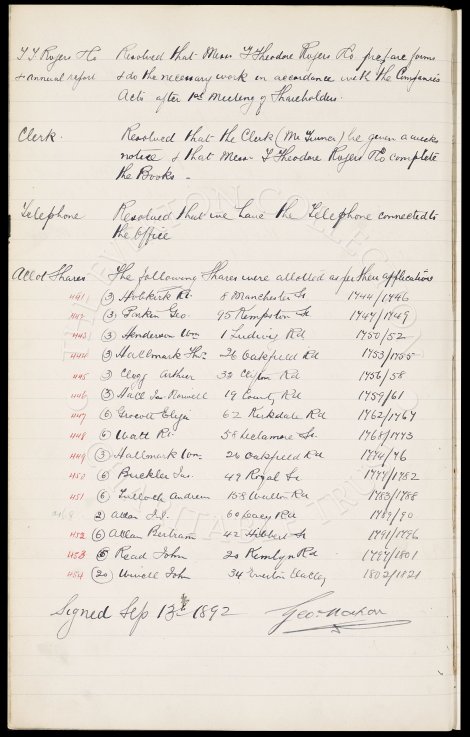 T Y Rogers & Co Resolved that Messr T Theodore Rogers & Co prepare forms
& annual report & do the necessary work in accordance with the Companies
Acts after 1st Meeting of Shareholders.
Clerk. Resolved that the Clerk (Mr Turner) be given a weeks
notice & that Messr T Theodore Rogers & Co complete
the Books -
Telephone Resolved that we have the Telephone connected to
the office
Allot Shares The following Shares were allotted as per their applications
441 (3) Hobkirk Rt. 8 Manchester St 1744/1746
442 (3) Parker Geo 95 Kempston St 1747/1749
443 (3) Henderson Wm 1 Ludwig Rd 1750/52
444 (3) Hallmark Thos. 26 Oakfield Rd 1753/1755
445 (3) Clegg Arthur 32 Clifton Rd 1756/58
446 (3) Hall Jas. 19 County Rd 1759/61
447 (6) 62 Kirkdale Rd 1762/1767
448 (6) Watt Rt. 58 St. 1768/1773
449 (3) Hallmark Wm. 26 Oakfield Rd 1774/76
450 (6) Buckley Jas. 49 Royal St 1777/1782
451 (6) Tulloch Andrew 158 Walton Rd 1783/1788
(2) Allan Jas. 60 Rd 1789/90
452 (6) Allan Bertram 42 Hilbert St 1791/1796
453 (5) Read John 20 Kemlyn Rd 1797/1801
454 (20) John 34 Everton Valley 1802/1821
Signed Sep 13th 1892 Geo. Mahon